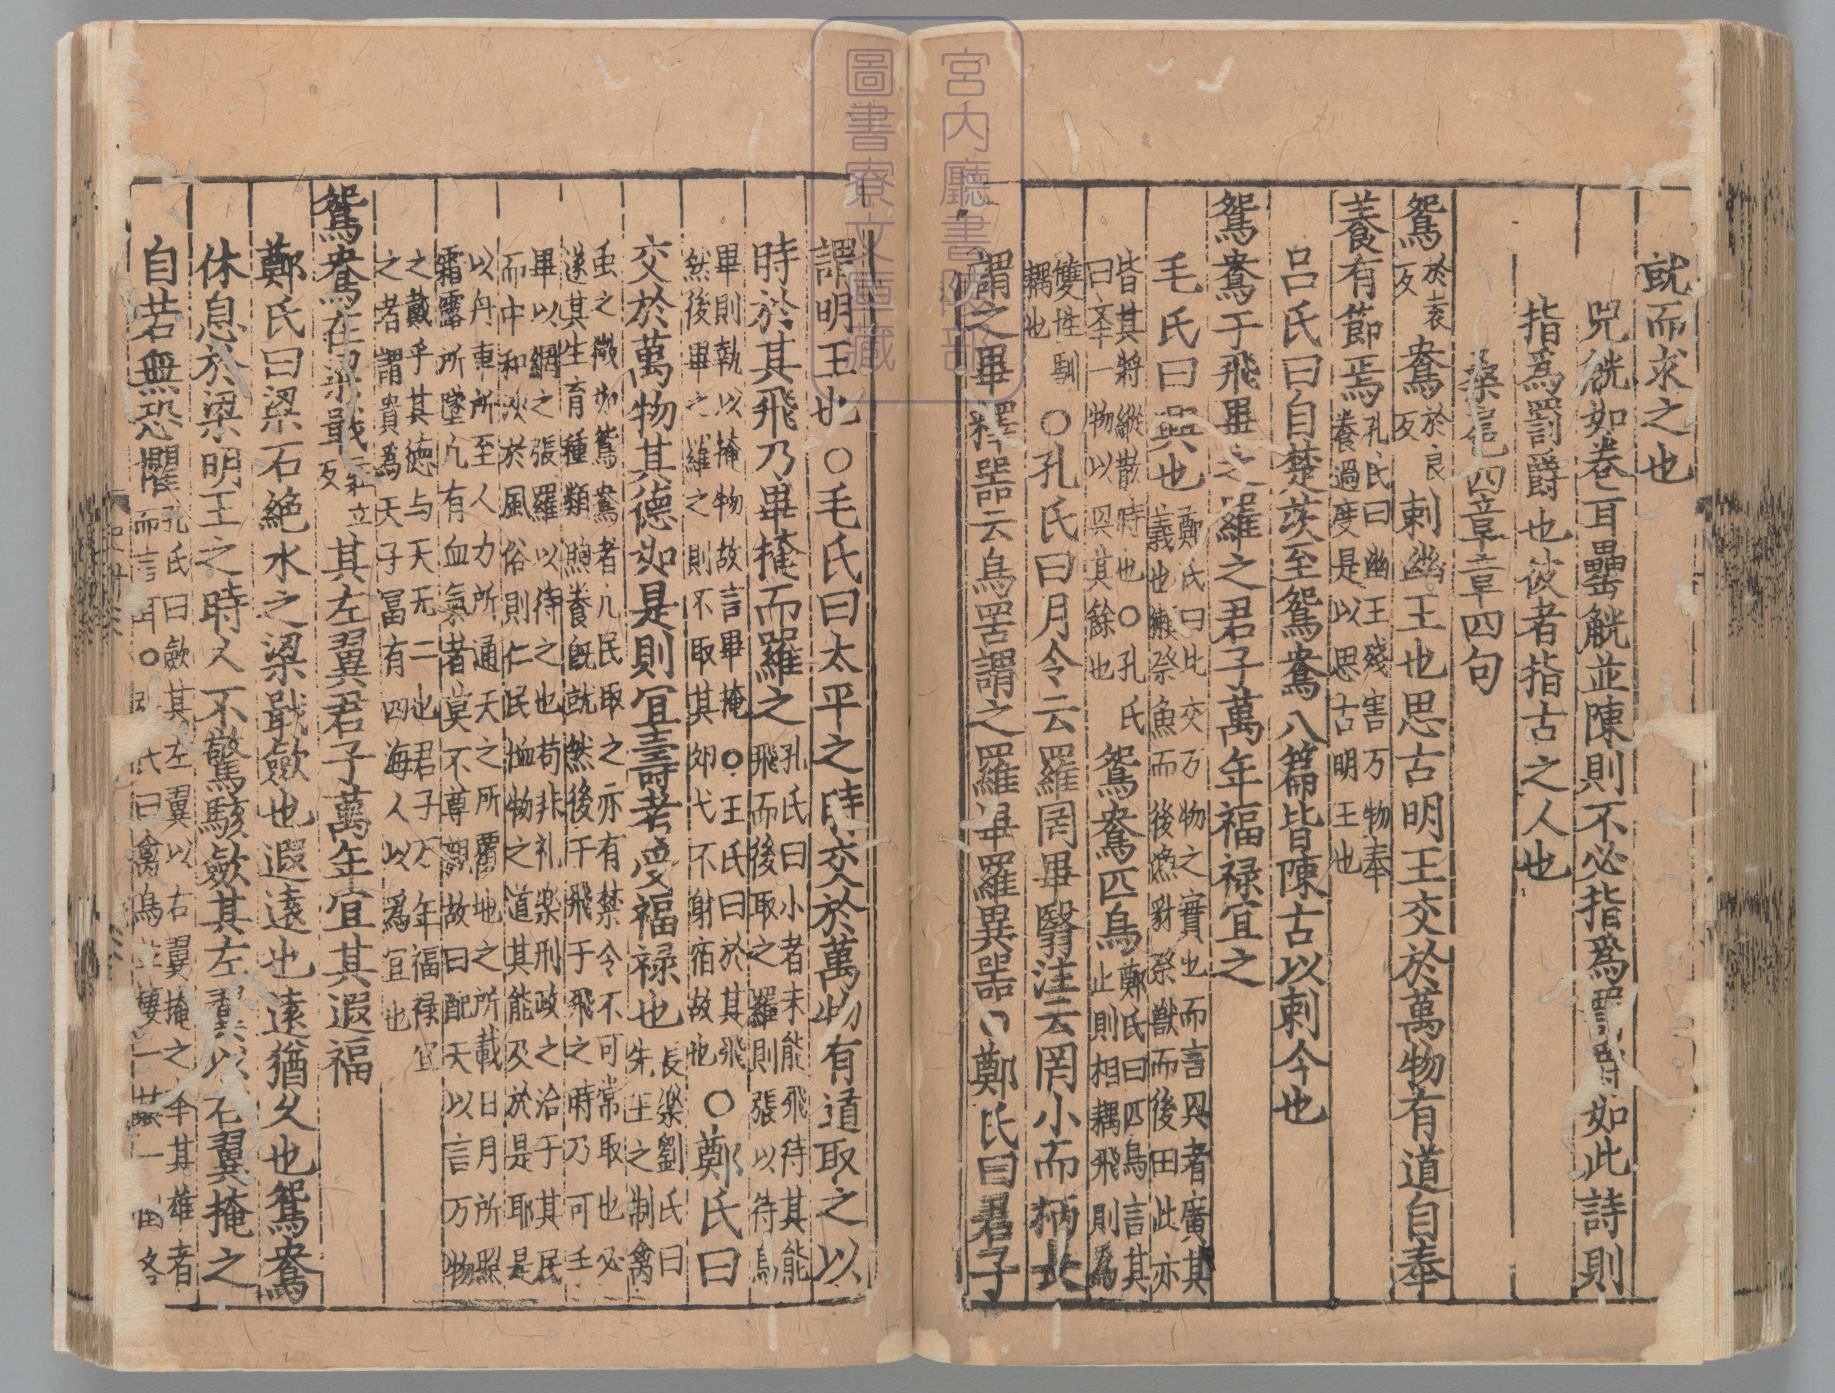 就而求之也
兕觥如卷耳罍觥並陳則不必指為罰爵如此詩則
指為罰爵也彼者指古之人也
桑扈四章章四句
鴛於袁反鴦於良反刺幽王也思古明王交於萬物有道自奉
養有節焉孔氏曰幽王殘害万物奉養過度是以思古明王也
呂氏曰自楚茨至鴛鴦八篇皆陳古以刺今也
鴛鴦于飛畢之羅之君子萬年福禄宜之
毛氏曰興也鄭氏曰此交万物之實也而言興者廣其義也獺祭魚而後漁豺祭獸而後田此亦
皆其將縱散時也○孔氏曰举一物以興其餘也鴛鴦匹鳥鄭氏曰匹鳥言其止則相耦飛則為
雙性馴耦也○孔氏曰月令云羅罔畢翳注云罔小而柄長
謂之畢釋器云鳥罟謂之羅畢羅異器○鄭氏曰君子
謂明王也○毛氏曰太平之時交於萬物有道取之以
時於其飛乃畢掩而羅之孔氏曰小者未能飛待其能飛而後取之羅則張以待鳥
畢則執以掩物故言畢掩○王氏曰於其飛然後畢之羅之則不取其卵弋不射宿故也○鄭氏曰
交於萬物其德如是則宜壽考受福禄也長樂劉氏曰先王之制禽
虫之微如鴛鴦者凡民取之亦有禁令不可常取也必遂其生育種類煦養既就然後于飛于飛之時乃可壬
畢以網之張羅以待之也苟非礼楽刑政之洽于其民而中和浹於風俗則仁民恤物之道其能及於是耶是
以舟車所至人力所通天之所覆地之所載日月所照霜露所墜凢有血氣者莫不尊親故曰配天以言万物
之戴乎其徳与天无二也君子万年福禄宜之者謂貴為天子冨有四海人以為宜也
鴛鴦在梁戢莊立反其左翼君子萬年宜其遐福
鄭氏曰梁石絶水之梁戢歛也遐遠也遠猶久也鴛鴦
休息於梁明王之時人不驚駭歛其左翼以右翼掩之
自若無恐懼孔氏曰歛其左翼以右翼掩之举其雄者而言耳○氏曰禽鳥並棲一